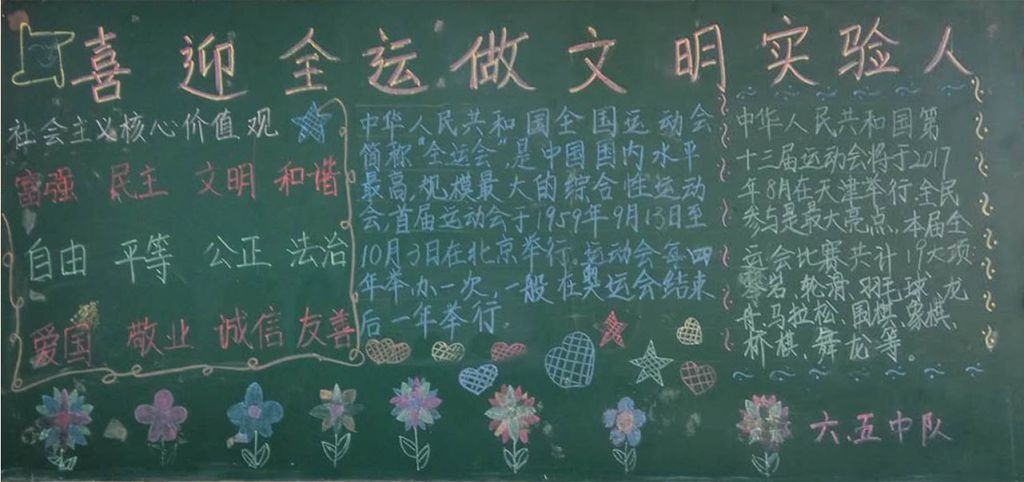 喜迎全运做文明实验人
社会主义核心价值观
富强 民主 文明 和谐
自由 平等 公正 法治
爱国 敬业 诚信 友善
中华人民共和国全国运动会
简称"全运会"是中国国内水平
最高,规模最大的综合性运动
会,首届运动会于1959年9月13日至
10月3日在北京举行。运动会每四
年举办一次,一般在奥运会结束
后一年举行。
中华人民共和国第
十三届运动会将于2017
年8月在天津举行,全民
参与是最大亮点,本届全
运会比赛共计19大项
攀岩、轮滑、羽毛球、龙
舟、马拉松、围棋、象棋、
桥棋、舞龙等。
六、五中队